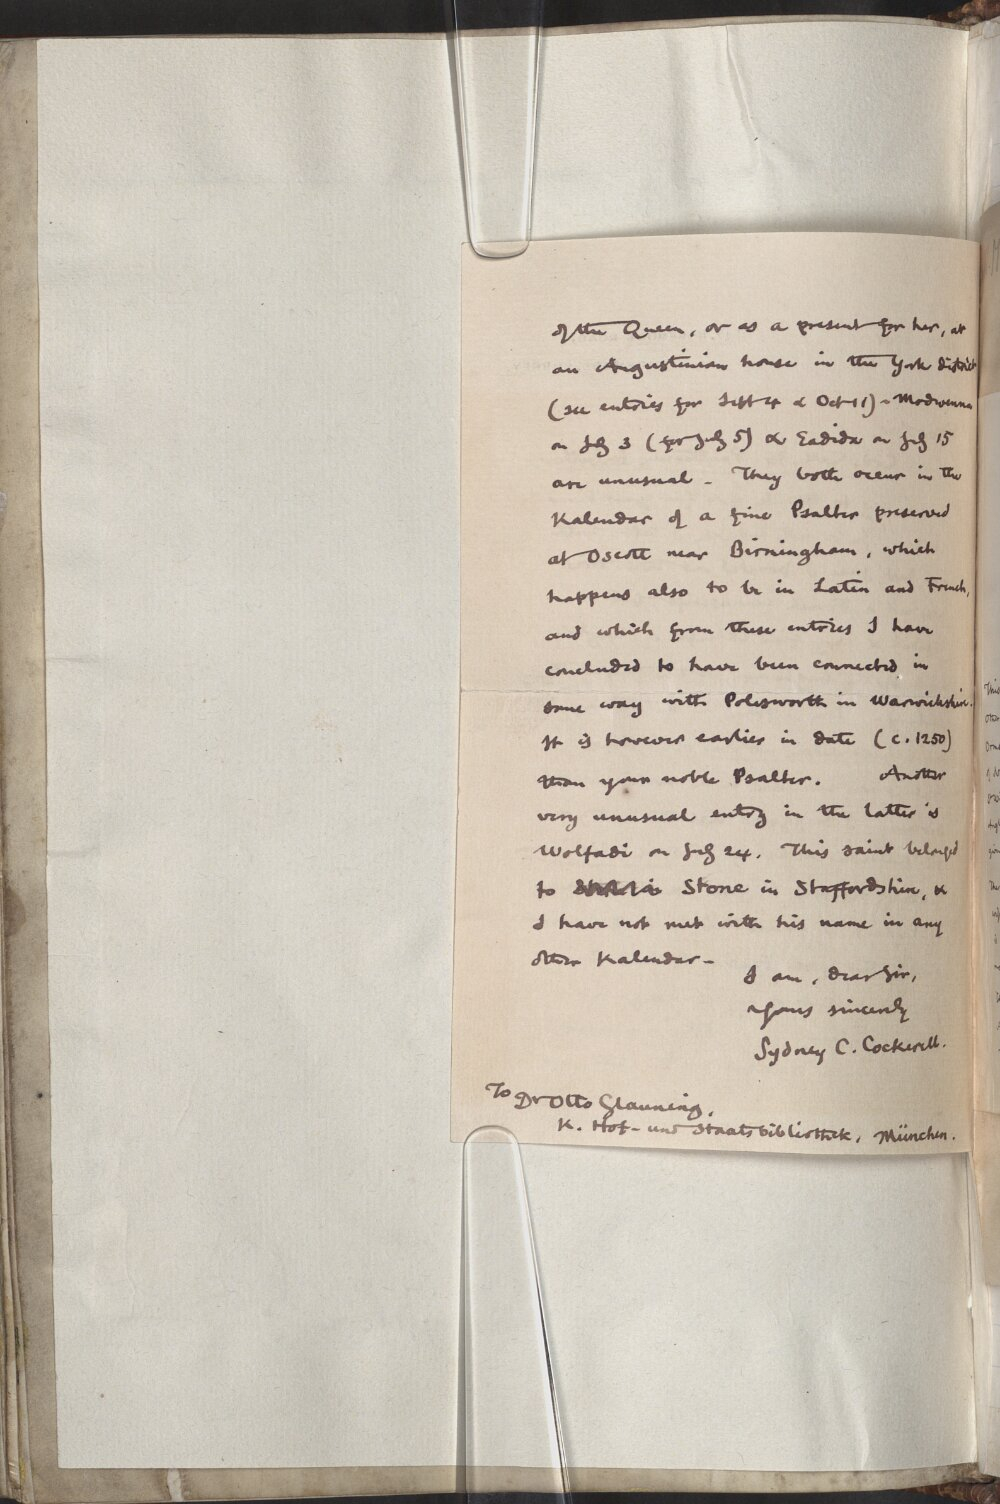 of the Queen, or as a present for her, at
an Augustinian house in the York district
(see entries for Sept 4 & Oct 11) - Modwenna
on July 3 (for July 5) & Eadida on July 15
are unusual - They both occur in the
Kalendar of a fine Psalter preserved
at Oscott near Birmingham, which
happens also to be in Latin and French,
and which from these entries I have
concluded to have been connected in
some way with Polesworth in Warwickshire.
It is however earlier in date (c. 1250)
than your noble Psalter. Another
very unusual entry in the latter is
Wolfadi on July 24. This saint belonged
to Stone in Staffordshire, &
I have not met with his name in any
other Kalendar -
I am, dear Sir,
yours sincerely
Sydney C. Cockerell.
To Dr Otto Glauning,
K. Hof- und Staatsbibliothek, München.